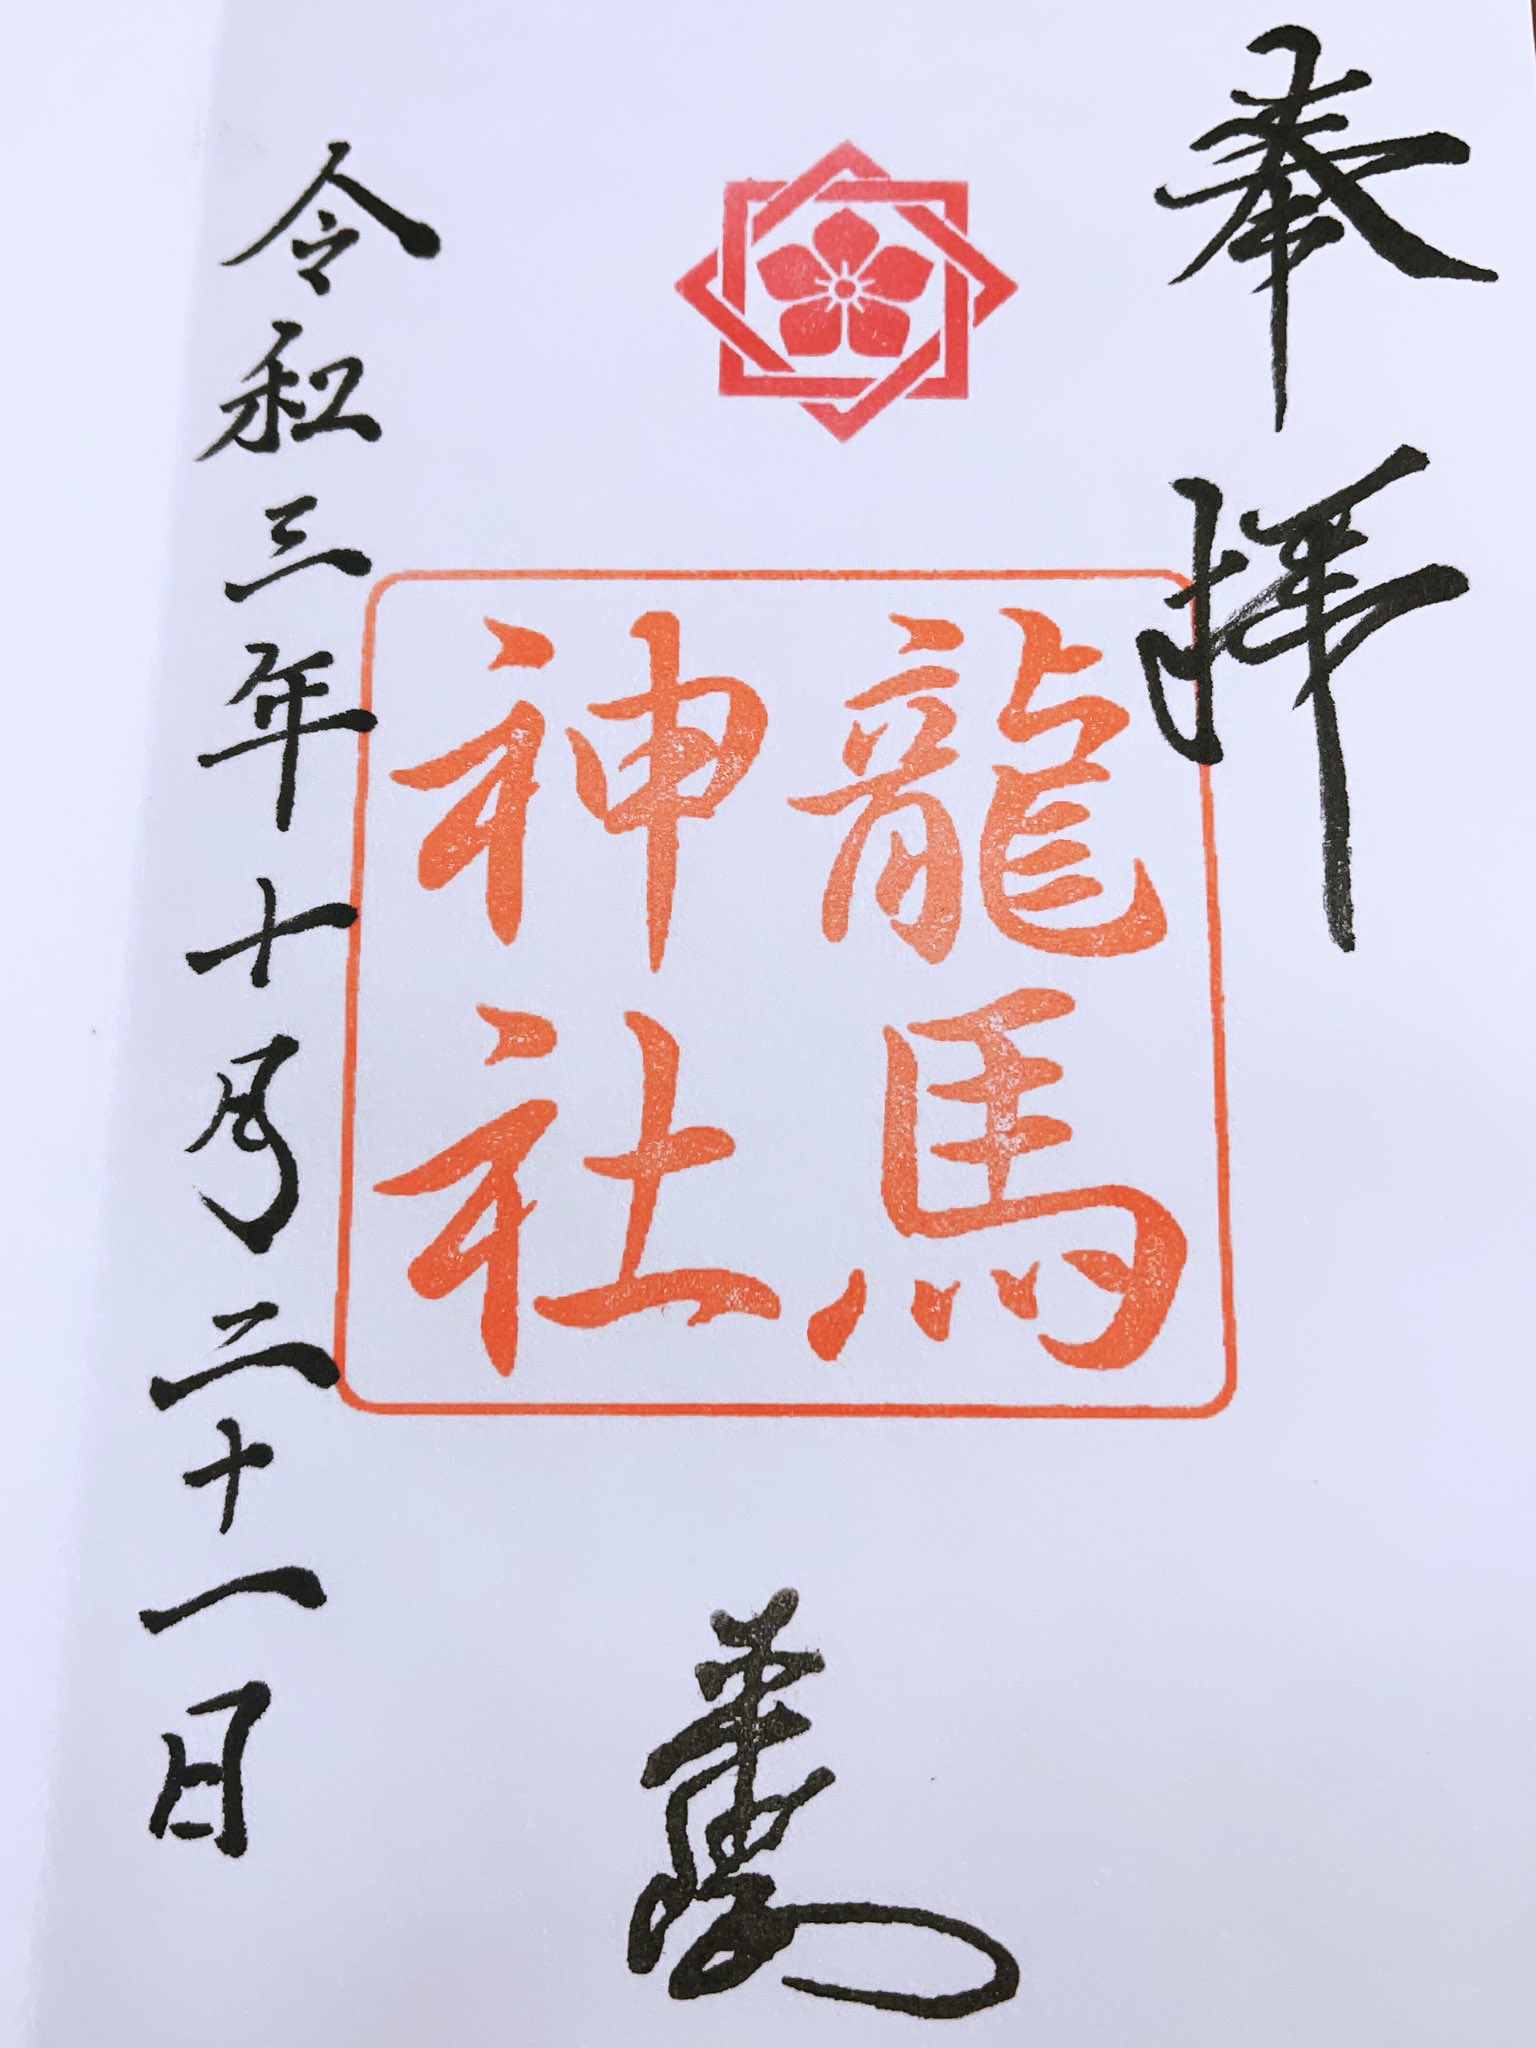 奉拝
龍馬
神社
令和三年十月二十一日